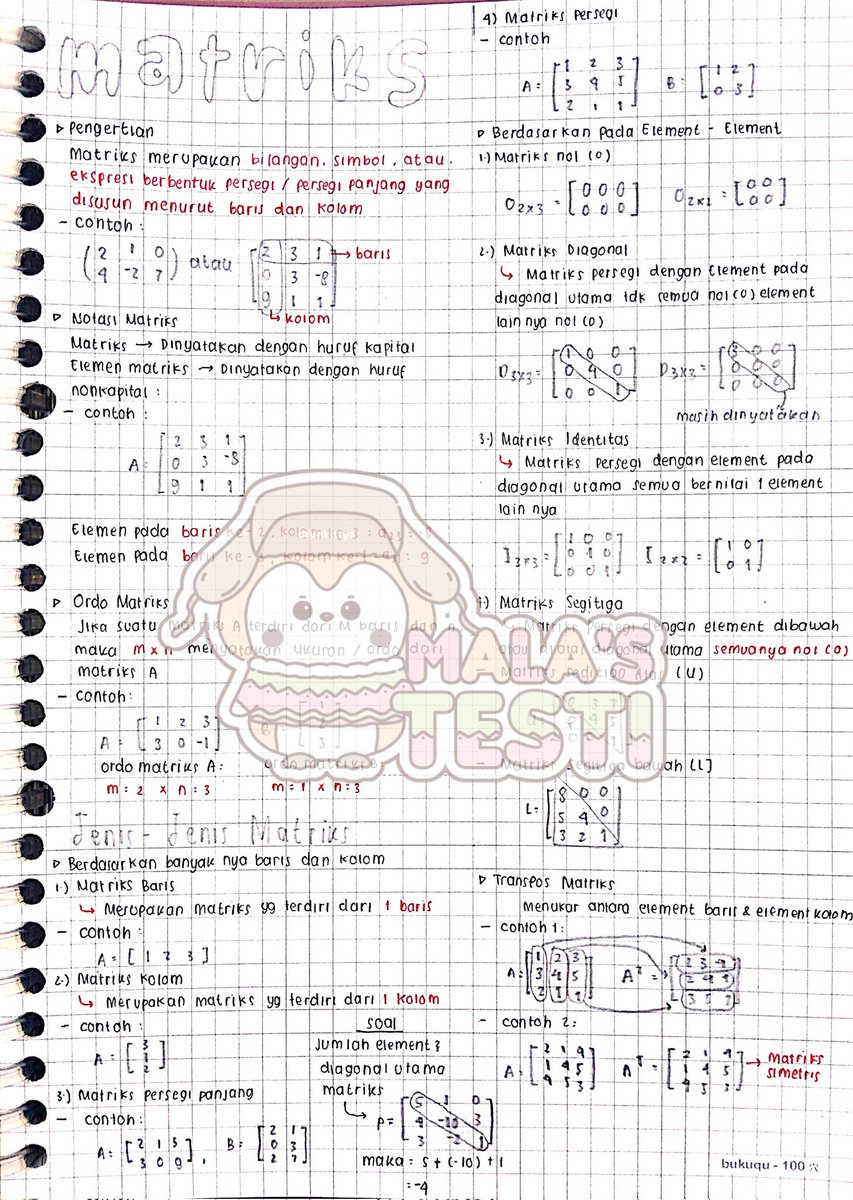 matriks
▷ Pengertian
Matriks merupakan bilangan, simbol, atau
ekspresi berbentuk persegi / persegi panjang yang
disusun menurut baris dan kolom
- contoh :
( 2 1 0
4 -2 7 ) atau [ 2 3 1 → baris
0 3 -8
9 1 1 ]
↳ kolom
▷ Notasi Matriks
Matriks → Dinyatakan dengan huruf kapital
Elemen matriks → Dinyatakan dengan huruf
nonkapital :
- contoh :
A = [ 2 3 1
0 3 -8
9 1 1 ]
Elemen pada baris ke-2, kolom ke 3 : a23 : -8
Elemen pada baris ke-3, kolom ke 1 : a31 : 9
▷ Ordo Matriks
Jika suatu matriks A terdiri dari M baris dan n
maka m x n menyatakan ukuran / ordo dari
matriks A
- contoh :
A = [ 1 2 3
3 0 -1 ]
ordo matriks A : ordo matriks B
m : 2 x n : 3 m : 1 x n : 3
Jenis - Jenis Matriks
▷ Berdasarkan banyak nya baris dan kolom
1.) Matriks Baris
↳ Merupakan matriks yg terdiri dari 1 baris
- contoh :
A = [ 1 2 3 ]
2.) Matriks Kolom
↳ Merupakan matriks yg terdiri dari 1 kolom
- contoh :
A = [ 3
2 ]
3.) Matriks persegi panjang
- contoh :
A = [ 2 1 5
3 0 9 ] , B = [ 2 1
0 3
2 7 ]
soal
Jumlah element 3
diagonal utama
matriks
↳ P = [ 5 3 0
4 -10 3
3 -2 1 ]
maka : 5 + (-10) + 1
: -4
4) Matriks Persegi
- contoh
A = [ 1 2 3
3 4 5
2 1 1 ] B = [ 1 2
0 3 ]
▷ Berdasarkan pada Element - Element
1.) Matriks nol (0)
O2x3 = [ 0 0 0
0 0 0 ] O2x2 = [ 0 0
0 0 ]
2.) Matriks Diagonal
↳ Matriks persegi dengan Element pada
diagonal utama tdk semua nol (0) element
lain nya nol (0)
D3x3 = [ 1 0 0
0 4 0
0 0 1 ] D3x3 = [ 3 0 0
0 0 0
0 0 0 ]
masih dinyatakan
3.) Matriks Identitas
↳ Matriks persegi dengan element pada
diagonal utama semua bernilai 1 element
lain nya
I3x3 = [ 1 0 0
0 1 0
0 0 1 ] I2x2 = [ 1 0
0 1 ]
4) Matriks Segitiga
Matriks persegi dengan element dibawah
atau diatas diagonal utama semuanya nol (0)
- Matriks segitiga Atas (U)
- Matriks Segitiga bawah [L]
L = [ 8 0 0
5 4 0
3 2 1 ]
▷ Transpos Matriks
Menukar antara element baris & element kolom
- contoh 1 :
A = [ 1 2 3
3 4 5
2 1 1 ] Aᵀ =
- contoh 2 :
A = [ 2 1 9
1 4 5
9 5 3 ] Aᵀ = [ 2 1 9
1 4 5
9 5 3 ] → Matriks
simetris
MALA'S
TESTI
bukuqu - 100